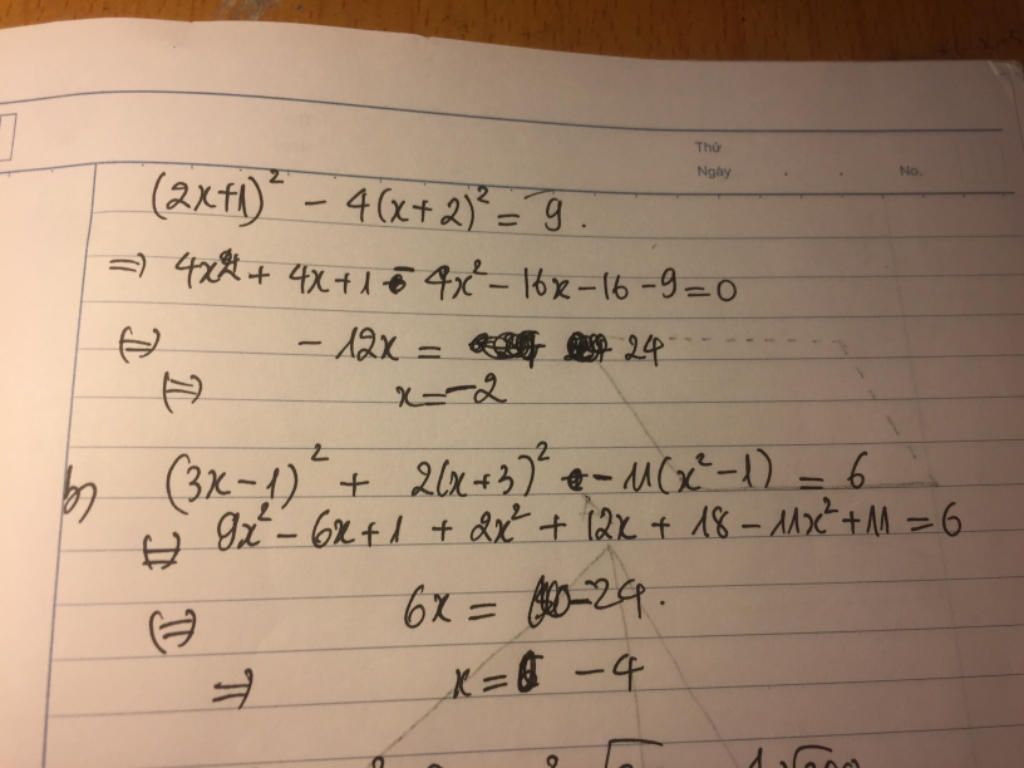 Thứ
Ngày . . No.
(2x+1)² - 4(x+2)² = 9.
=> 4x² + 4x+1 - 4x² - 16x - 16 - 9 = 0
(=) - 12x = 24
(=) x = -2
b) (3x-1)² + 2(x+3)² - 11(x²-1) = 6
(=) 9x² - 6x+1 + 2x² + 12x + 18 - 11x² + 11 = 6
(=) 6x = -24.
=> x = -4